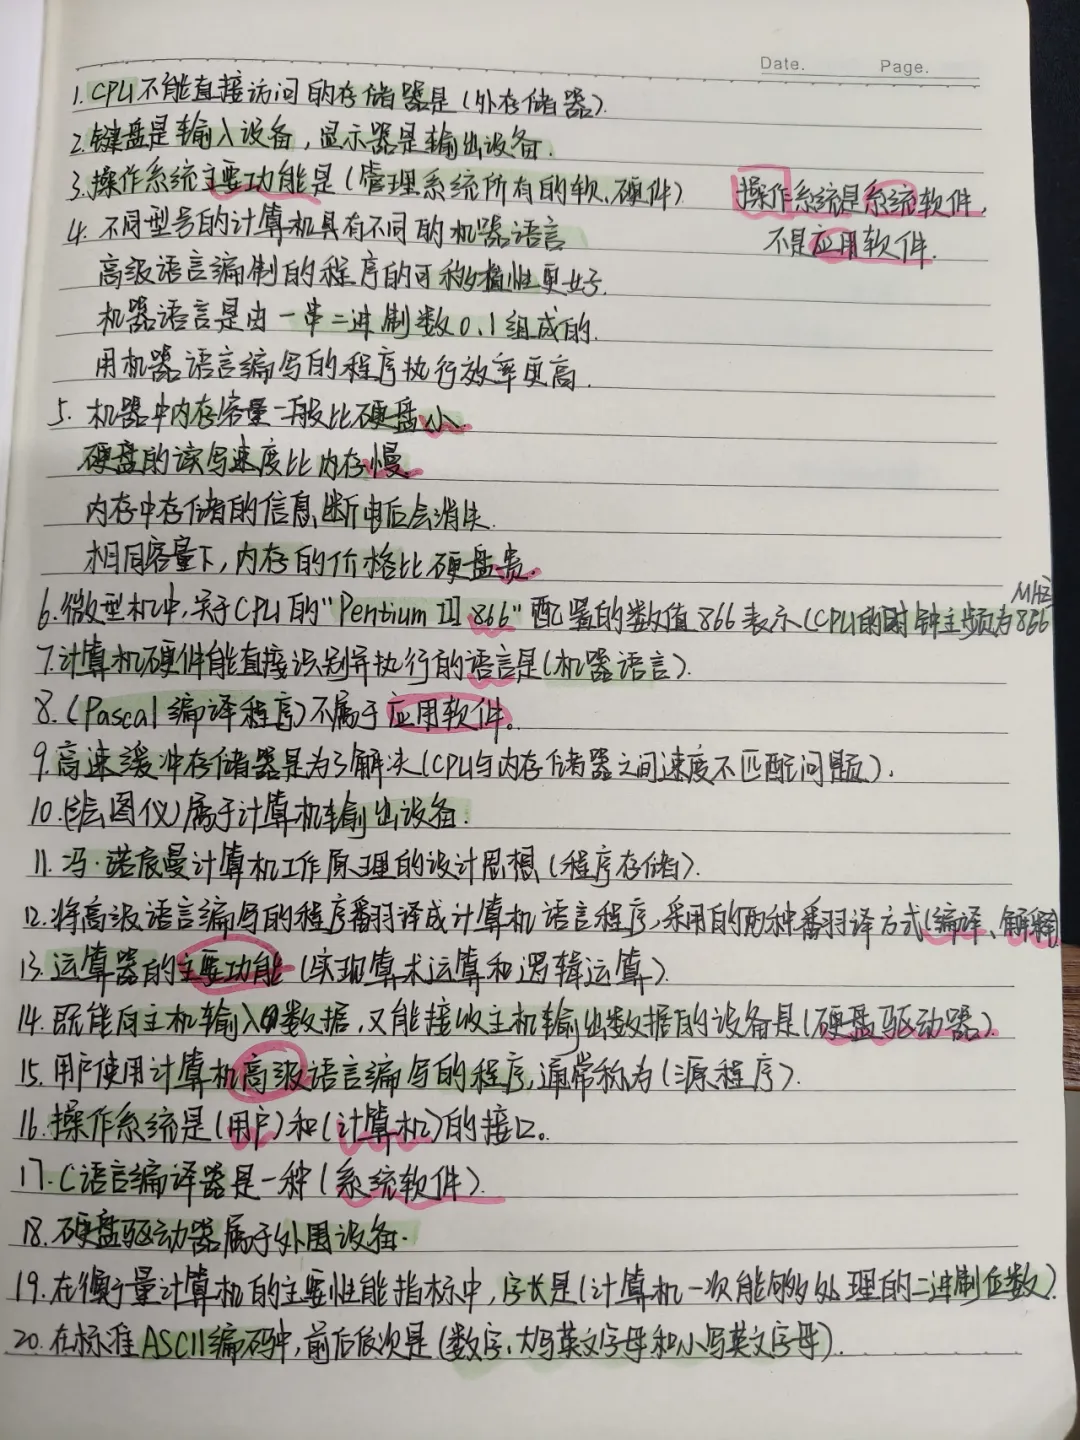 Date. Page.
1.CPU不能直接访问的存储器是(外存储器).
2.键盘是输入设备,显示器是输出设备.
3.操作系统主要功能是(管理系统所有的软、硬件) 操作系统是系统软件,
不是应用软件.
4.不同型号的计算机具有不同的机器语言
高级语言编制的程序的可移植性更好.
机器语言是由一串二进制数0.1组成的.
用机器语言编写的程序执行效率更高.
5.机器中内存容量一般比硬盘小.
硬盘的读写速度比内存慢
内存中存储的信息,断电后会消失.
相同容量下,内存的价格比硬盘贵.
6.微型机中,关于CPU的"Pentium III 866"配置的数值866表示(CPU的时钟主频为866MHz
7.计算机硬件能直接识别并执行的语言是(机器语言).
8.(Pascal编译程序)不属于应用软件。
9.高速缓冲存储器是为了解决(CPU与内存储器之间速度不匹配问题).
10.(绘图仪)属于计算机输出设备.
11.冯·诺依曼计算机工作原理的设计思想(程序存储).
12.将高级语言编写的程序翻译成计算机语言程序,采用的两种翻译方式(编译、解释)
13.运算器的主要功能(实现算术运算和逻辑运算).
14.既能向主机输入数据,又能接收主机输出数据的设备是(硬盘驱动器).
15.用户使用计算机高级语言编写的程序,通常称为(源程序).
16.操作系统是(用户)和(计算机)的接口。
17.C语言编译器是一种(系统软件).
18.硬盘驱动器属于外围设备.
19.在衡量计算机的主要性能指标中,字长是(计算机一次能够处理的二进制位数).
20.在标准ASCII编码中,前后依次是(数字、大写英文字母和小写英文字母).